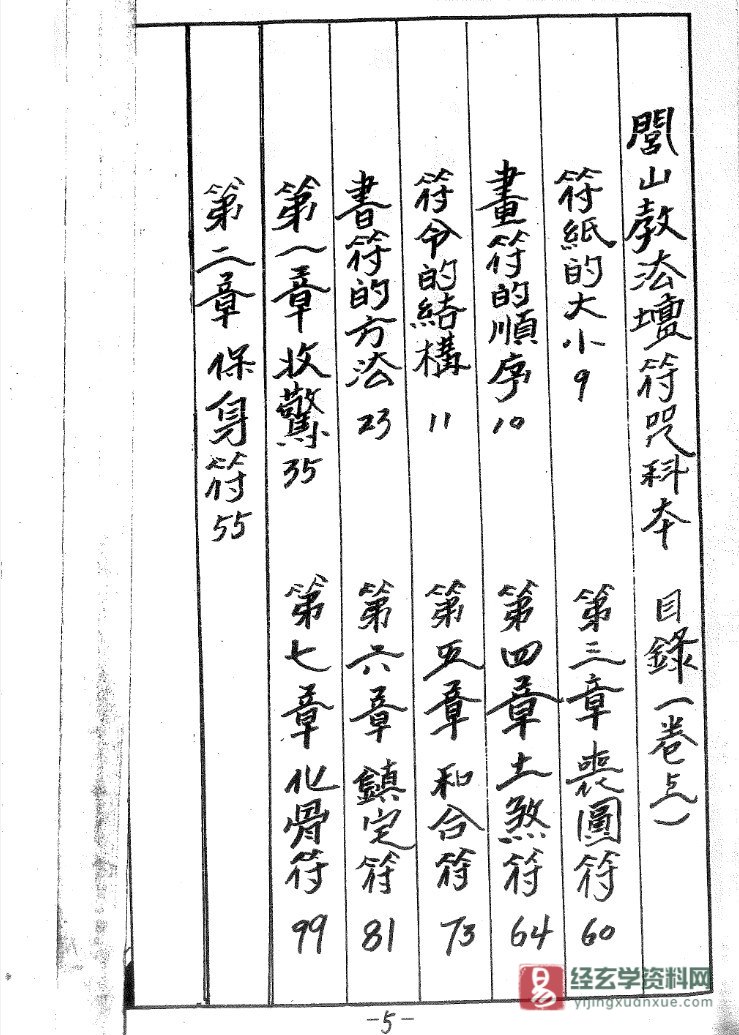 閭山教法壇符咒科本 目錄(卷上)
符紙的大小 9
畫符的順序 10
符令的結構 11
書符的方法 23
第一章 收驚 35
第二章 保身符 55
第三章 喪圖符 60
第四章 土煞符 64
第五章 和合符 73
第六章 鎮定符 81
第七章 化骨符 99
-5-
易 经玄学资料网
yijingxuanxue.com